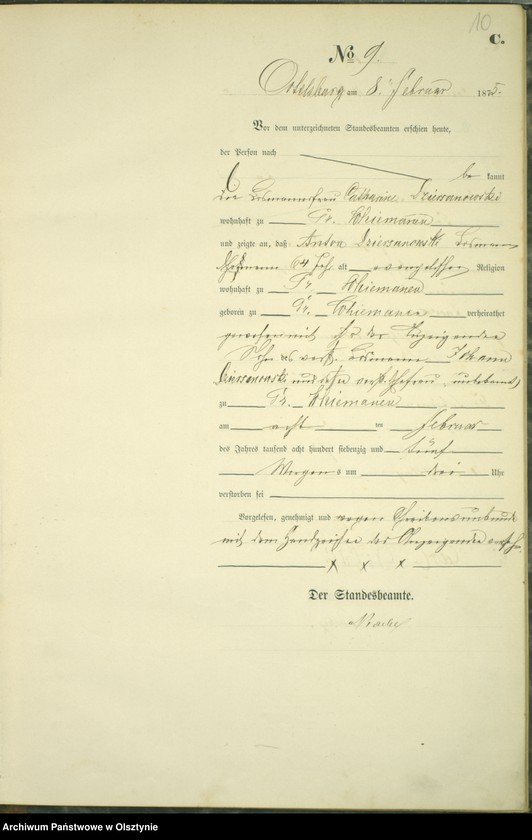 10
C.
No 9.
Ortelsburg am 8. Februar 1875.
Vor dem unterzeichneten Standesbeamten erschien heute,
der Person nach
be kannt
die Losmannsfrau Catharine Dziersanowski
wohnhaft zu Gr. Schiemanen
und zeigte an, daß Anton Dziersanowski Losmann
64 Jahr alt evangelischer Religion
wohnhaft zu Gr. Schiemanen
geboren zu Gr. Schiemanen verheirathet
gewesen mit der Anzeigenden
Sohn des verst. Losmann Johann
Dziersanowski und dessen verst. Ehefrau, unbekannt
zu Gr. Schiemanen
am acht en Februar
des Jahres tausend acht hundert siebenzig und fünf
Morgens um drei Uhr
verstorben sei
Vorgelesen, genehmigt und wegen Schreibensunkunde
mit dem Handzeichen der Anzeigenden
x x x
Der Standesbeamte.
Archiwum Państwowe w Olsztynie